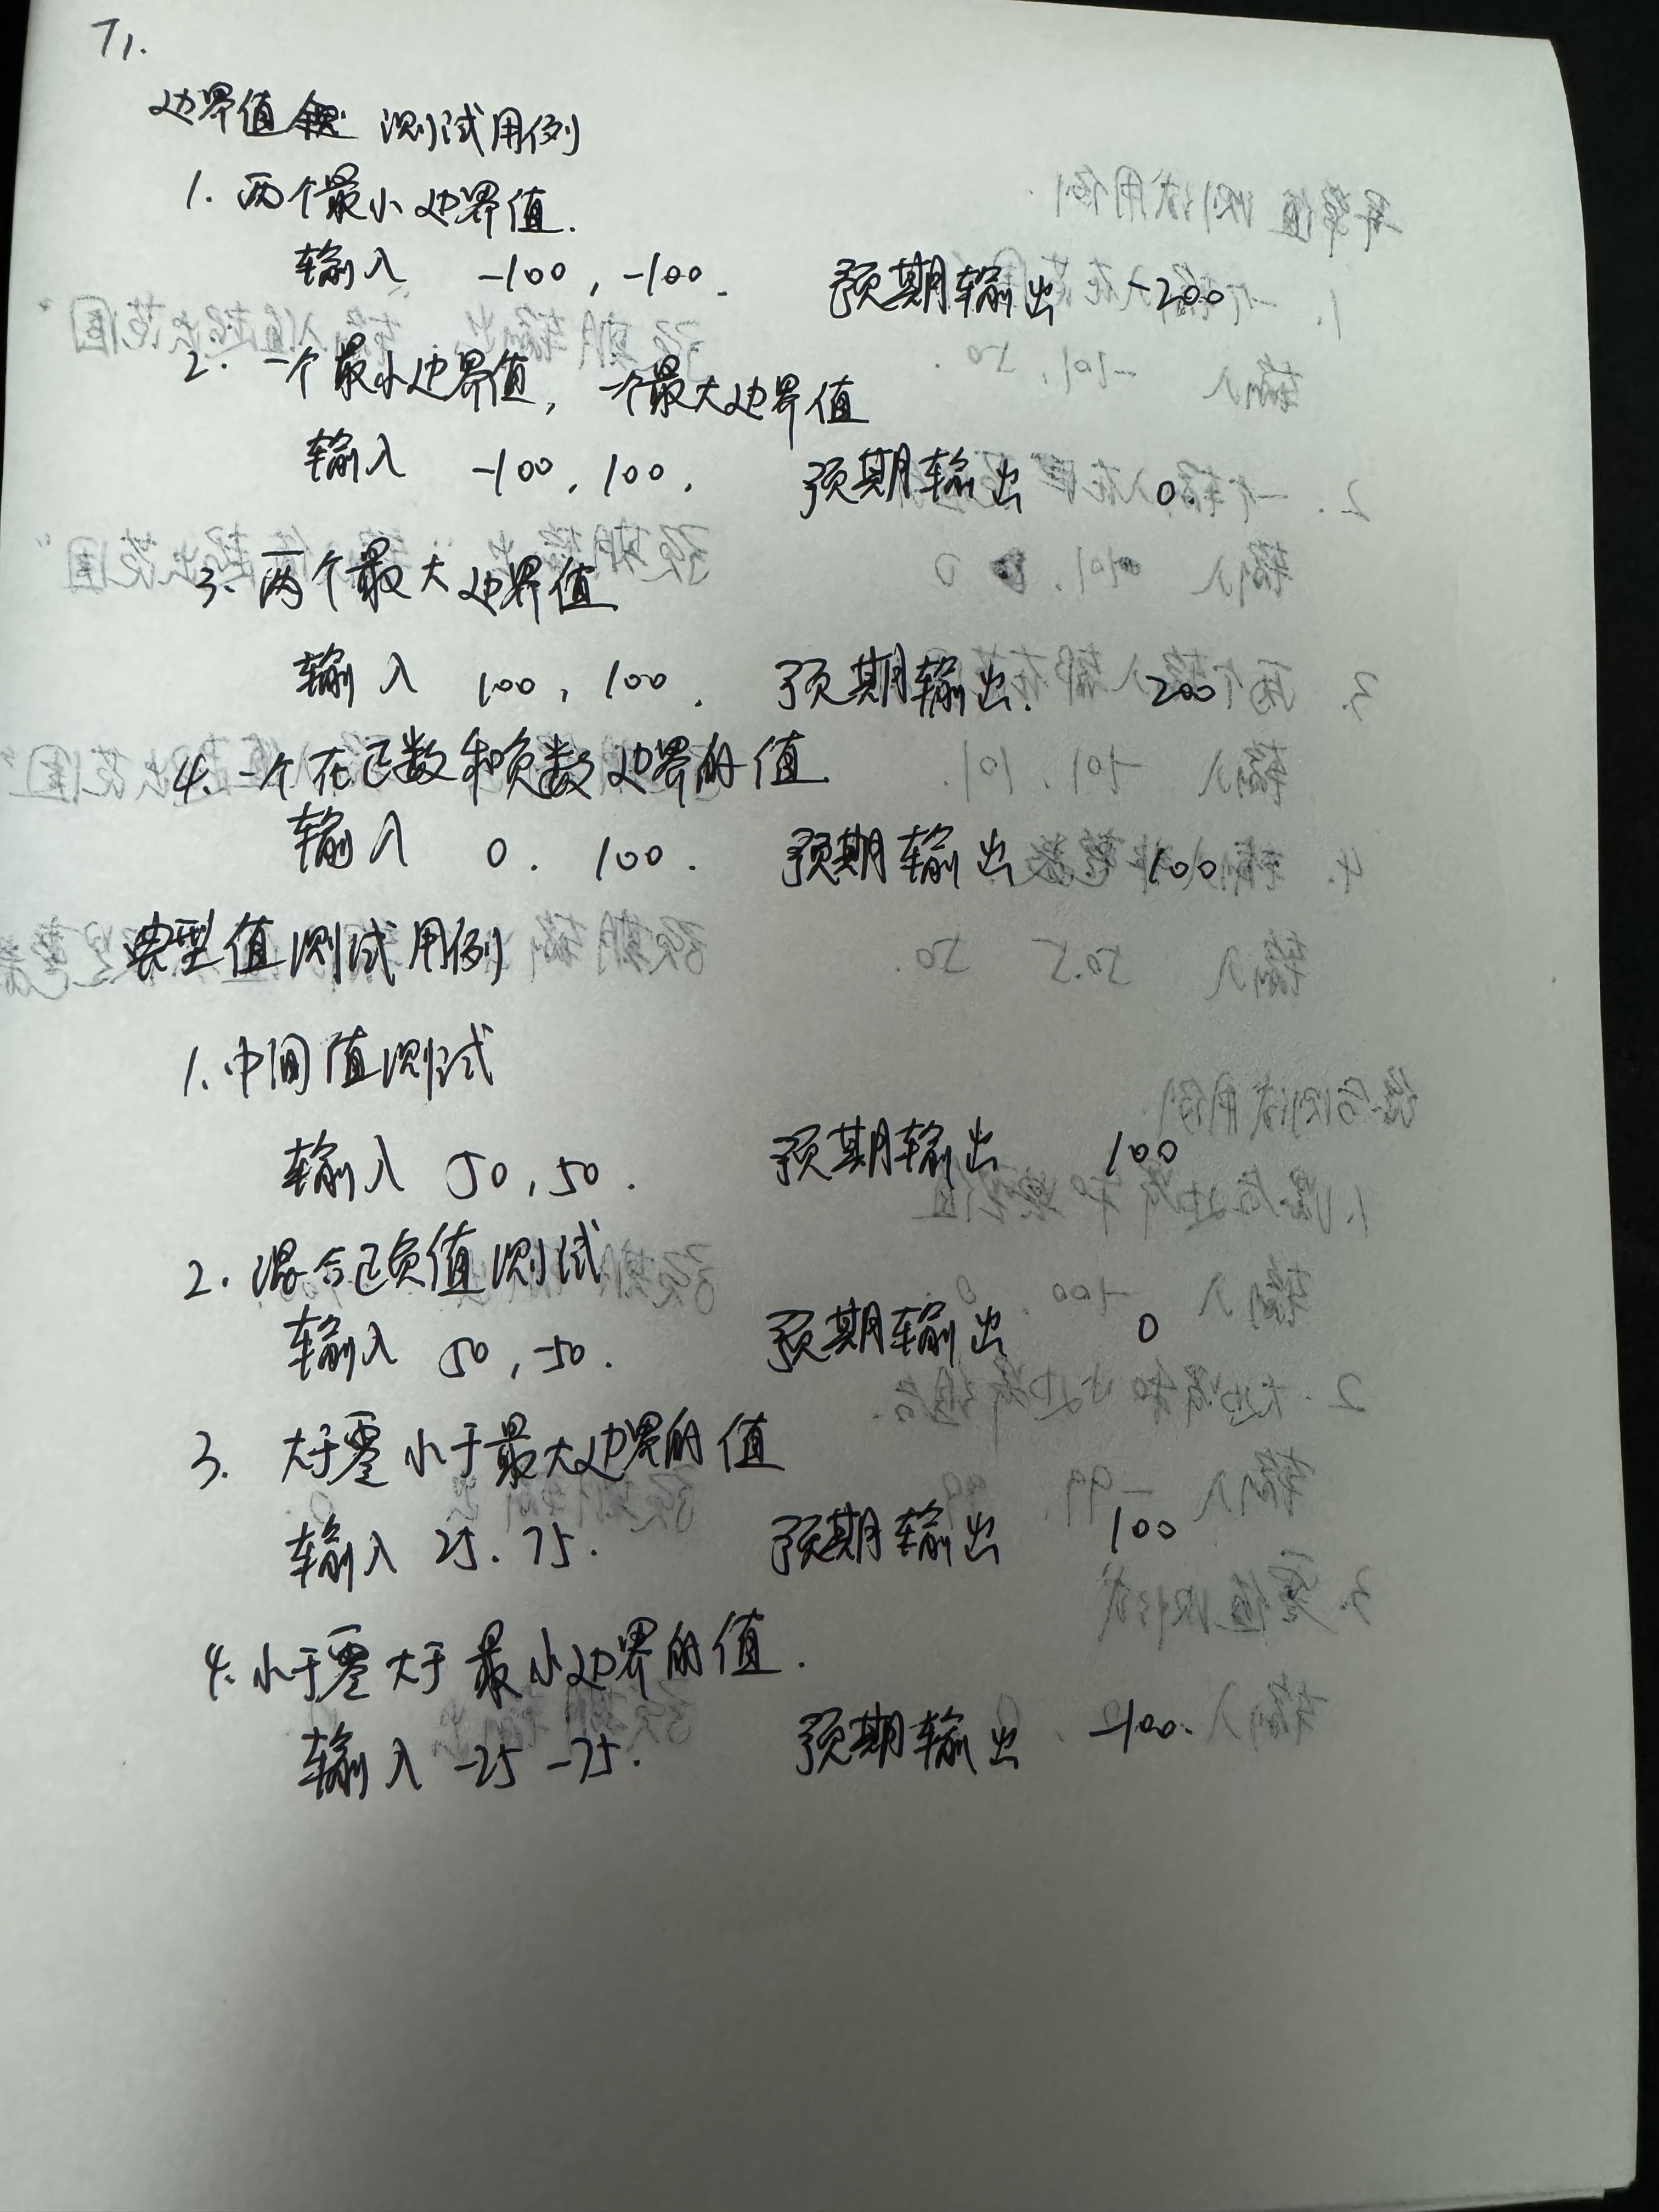 T1.
边界值 测试用例
1. 两个最小边界值.
输入 -100, -100. 预期输出 -200
2. 一个最小边界值, 一个最大边界值
输入 -100, 100, 预期输出 0.
3. 两个最大边界值
输入 100, 100. 预期输出. 200
4. 一个在正数和负数边界的值.
输入 0. 100. 预期输出 100
典型值测试用例
1. 中间值测试
输入 50, 50. 预期输出 100
2. 混合正负值测试
输入 50, -50. 预期输出 0
3. 大于零小于最大边界的值
输入 25. 75. 预期输出 100
4. 小于零大于最小边界的值.
输入 -25 -75. 预期输出 -100.